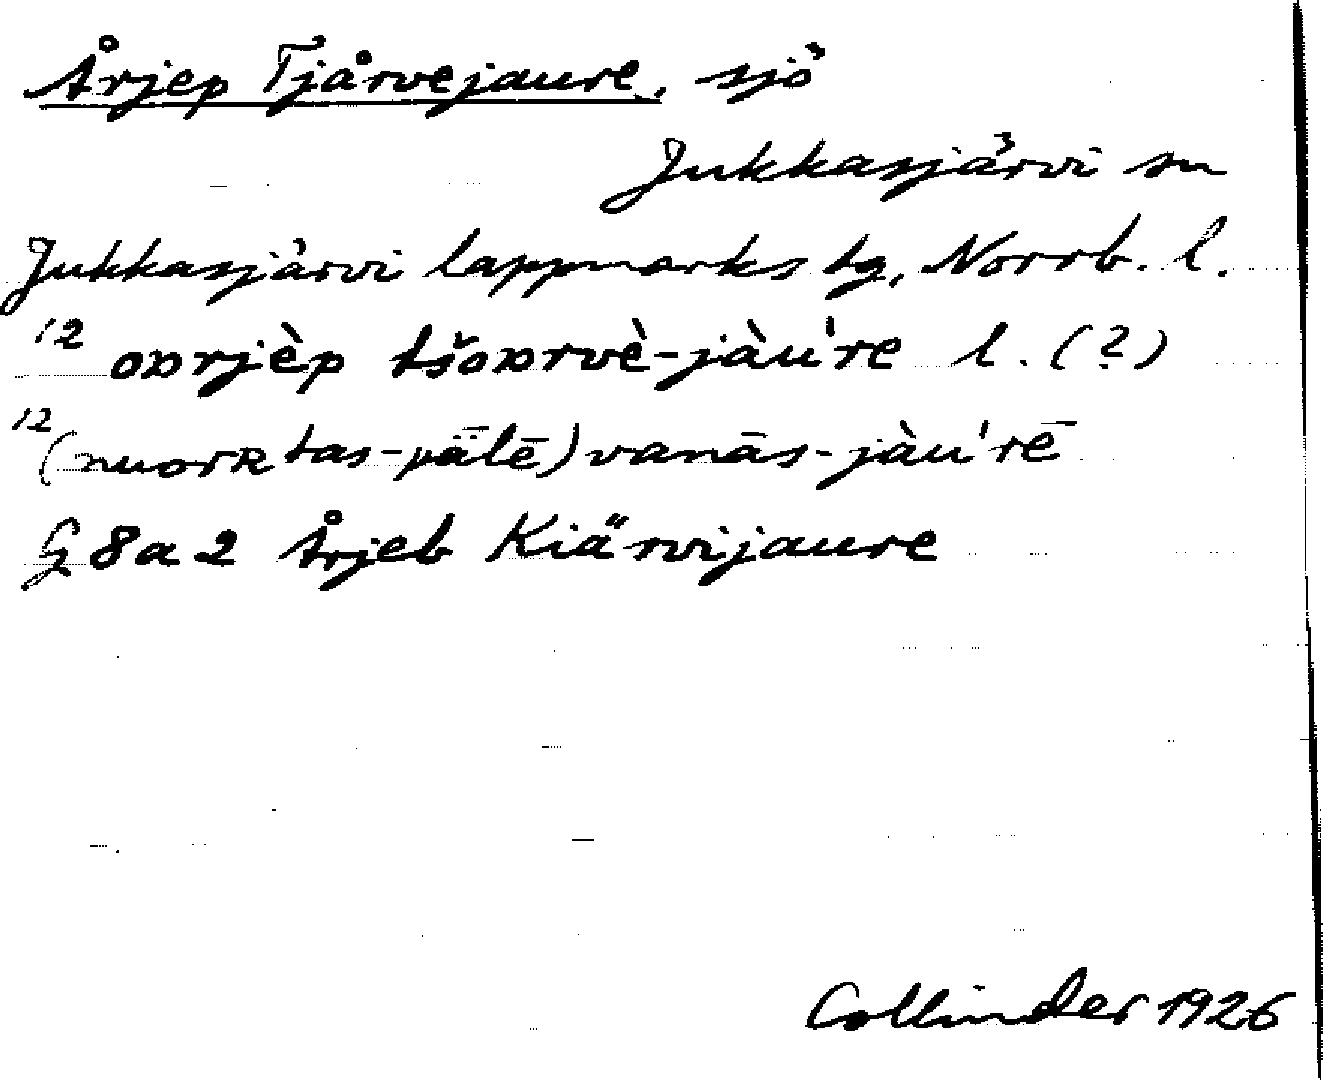 Årjep Tjårvejaure, sjö
Jukkasjärvi sn
Jukkasjärvi lappmarks tg, Norrb. l.
12 oɒrjèp tšoɒrvè-jàu're l. (?)
12 (nuorʀtas-pälē) vanās-jàu'rē
G 8a2 Årjeb Kiärvijaure
Collinder 1926